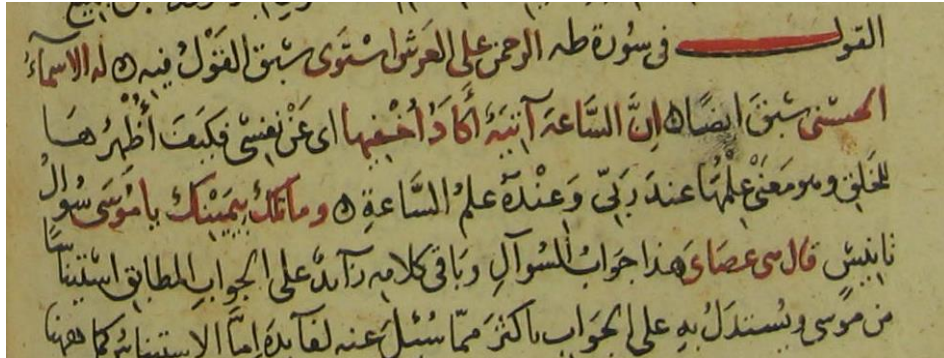 القول في سورة طه الرحمن على العرش استوى سبق القول فيه له الاسماء
الحسنى سبق ايضا ان الساعة آتية أكاد أخفيها اى عن نفسى فكيف أظهرها
للخلق وهو معنى علمها عند ربى وعنده علم الساعة وما تلك بيمينك يا موسى سوال
تانيس قال هى عصاى هذا جواب السوآل وباقى كلامه زآئد على الجواب المطابق استيناسا
من موسى ويستدل به على الجواب باكثر مما سئل عنه لفآيدة اما الاستيناس كما ههنا